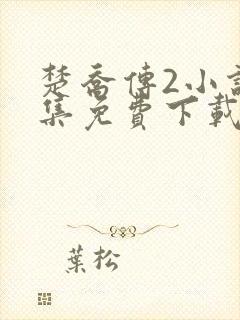 楚喬傳2小說
集免費下載
葉松